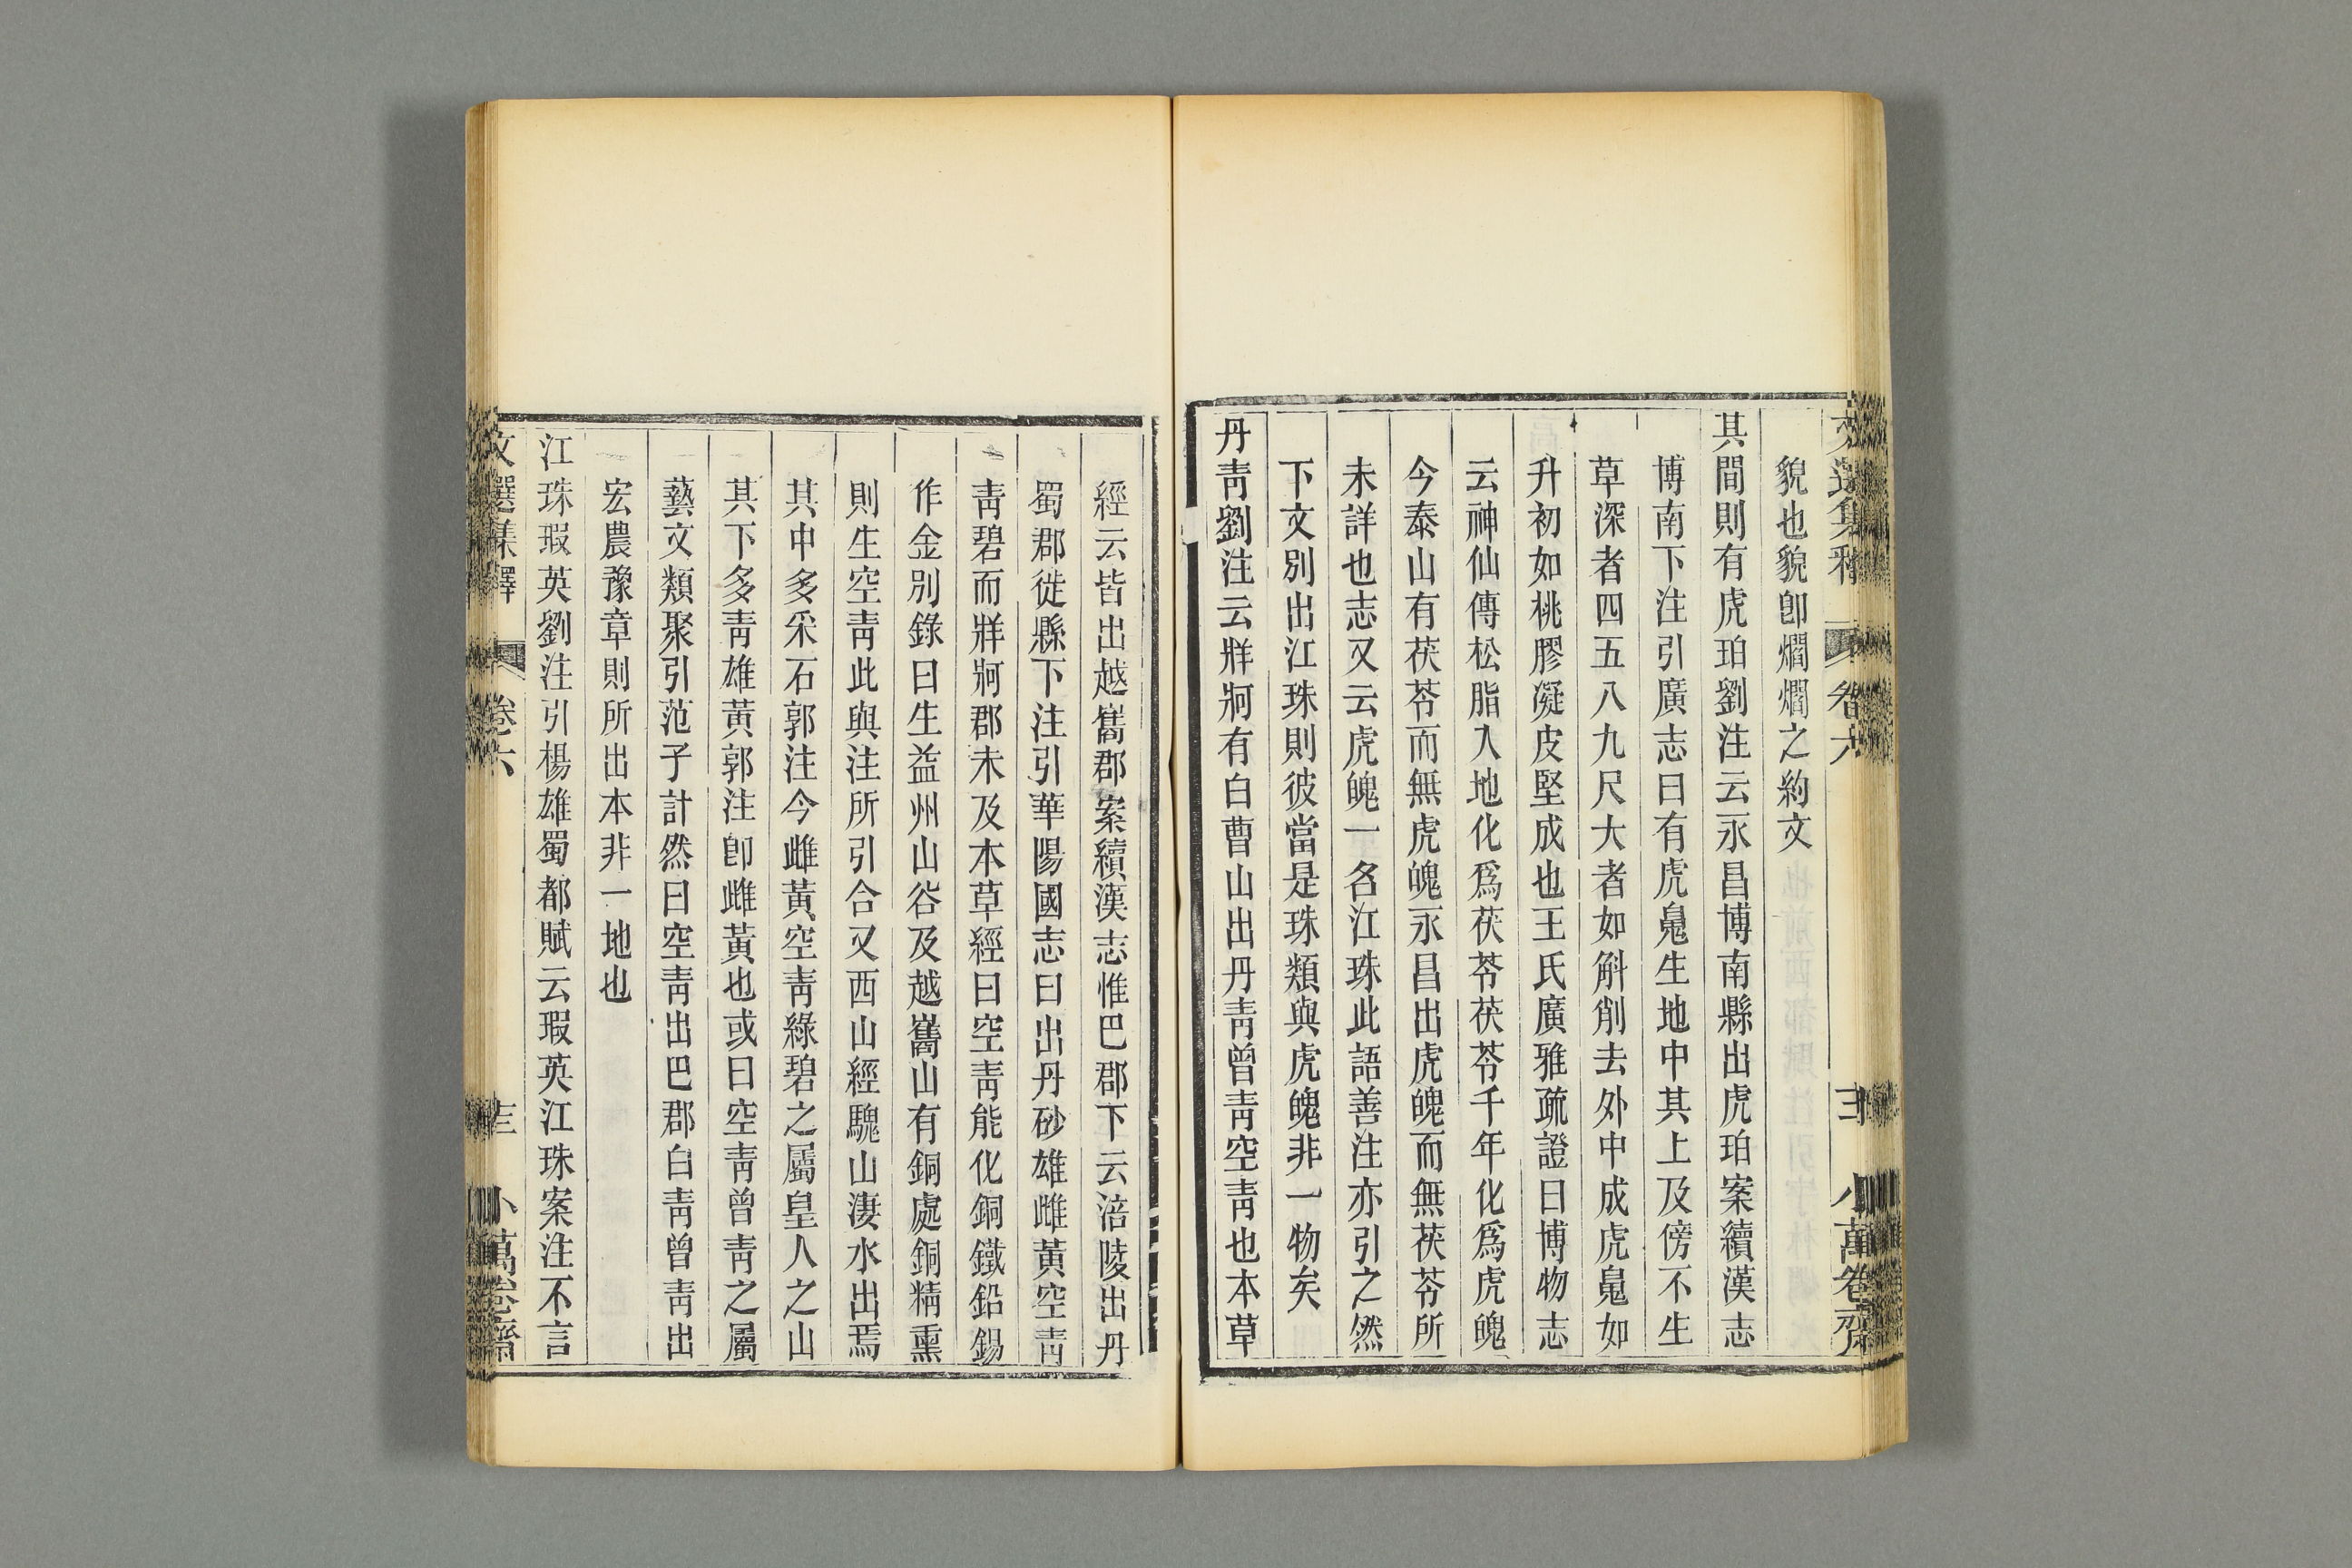 貌也貌卽爓爓之約文
其間則有虎珀劉注云永昌博南縣出虎珀案續漢志
博南下注引廣志曰有虎魄生地中其上及傍不生
草深者四五八九尺大者如斛削去外中成虎魄如
升初如桃膠凝皮堅成也王氏廣雅疏證曰博物志
云神仙傳松脂入地化爲茯苓茯苓千年化爲虎魄
今泰山有茯苓而無虎魄永昌出虎魄而無茯苓所
未詳也志又云虎魄一名江珠此語善注亦引之然
下文別出江珠則彼當是珠類與虎魄非一物矣
丹靑劉注云牂牁有白曹山出丹靑曾靑空靑也本草
經云皆出越巂郡案續漢志惟巴郡下云涪陵出丹
蜀郡徙縣下注引華陽國志曰出丹砂雄雌黃空靑
靑碧而牂牁郡未及本草經曰空靑能化銅鐵鉛錫
作金別錄曰生益州山谷及越巂山有銅處銅精熏
則生空靑此與注所引合又西山經騩山淒水出焉
其中多采石郭注今雌黃空靑綠碧之屬皇人之山
其下多靑雄黃郭注卽雌黃也或曰空靑曾靑之屬
藝文類聚引范子計然曰空靑出巴郡白靑曾靑出
宏農豫章則所出本非一地也
江珠瑕英劉注引楊雄蜀都賦云瑕英江珠案注不言
文選集釋 卷六 小萬卷齋